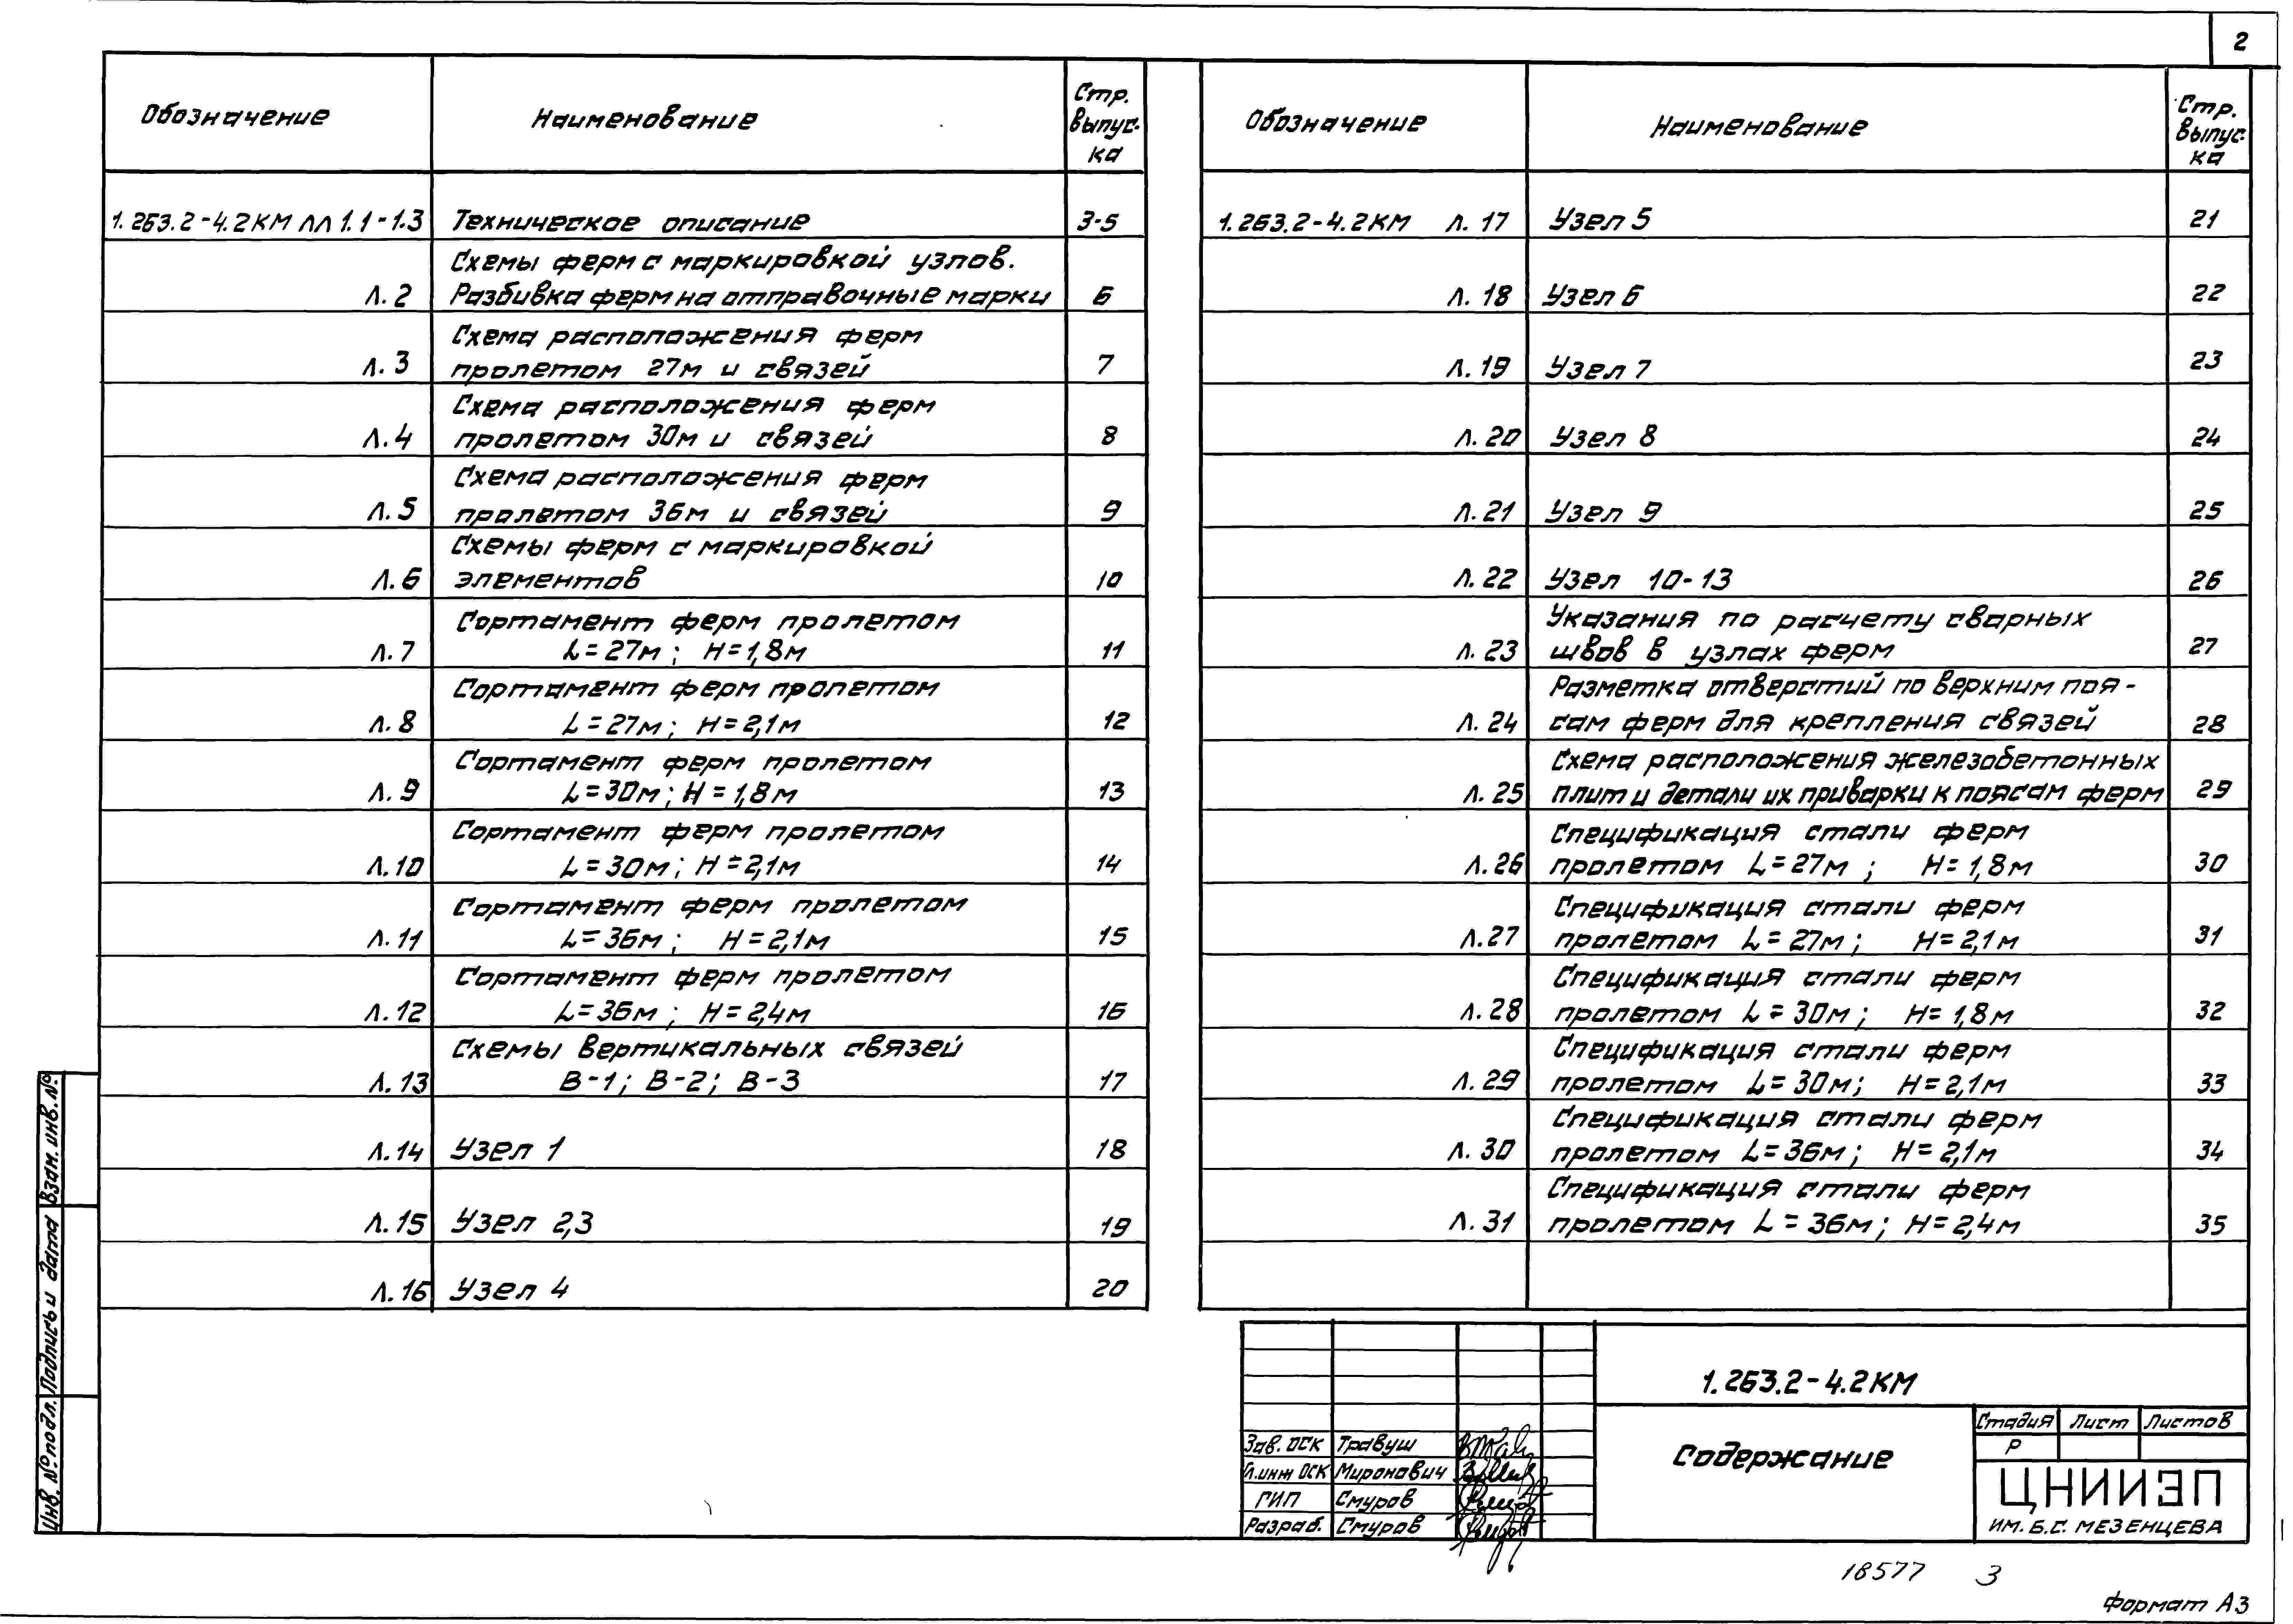 2
Обозначение Наименование Стр. выпус- ка
1.263.2-4.2КМ лл 1.1-1.3 Техническое описание 3-5
Схемы ферм с маркировкой узлов.
л.2 Разбивка ферм на отправочные марки 6
Схема расположения ферм
л.3 пролетом 27м и связей 7
Схема расположения ферм
л.4 пролетом 30м и связей 8
Схема расположения ферм
л.5 пролетом 36м и связей 9
Схемы ферм с маркировкой
л.6 элементов 10
Сортамент ферм пролетом
л.7 L=27м; H=1,8м 11
Сортамент ферм пролетом
л.8 L=27м; H=2,1м 12
Сортамент ферм пролетом
л.9 L=30м; H=1,8м 13
Сортамент ферм пролетом
л.10 L=30м; H=2,1м 14
Сортамент ферм пролетом
л.11 L=36м; H=2,1м 15
Сортамент ферм пролетом
л.12 L=36м; H=2,4м 16
Схемы вертикальных связей
л.13 В-1; В-2; В-3 17
л.14 Узел 1 18
л.15 Узел 2,3 19
л.16 Узел 4 20
Обозначение Наименование Стр. выпус- ка
1.263.2-4.2КМ л.17 Узел 5 21
л.18 Узел 6 22
л.19 Узел 7 23
л.20 Узел 8 24
л.21 Узел 9 25
л.22 Узел 10-13 26
Указания по расчету сварных
л.23 швов в узлах ферм 27
Разметка отверстий по верхним поя-
л.24 сам ферм для крепления связей 28
Схема расположения железобетонных
л.25 плит и детали их приварки к поясам ферм 29
Спецификация стали ферм
л.26 пролетом L=27м; H=1,8м 30
Спецификация стали ферм
л.27 пролетом L=27м; H=2,1м 31
Спецификация стали ферм
л.28 пролетом L=30м; H=1,8м 32
Спецификация стали ферм
л.29 пролетом L=30м; H=2,1м 33
Спецификация стали ферм
л.30 пролетом L=36м; H=2,1м 34
Спецификация стали ферм
л.31 пролетом L=36м; H=2,4м 35
Инв. № подл. Подпись и дата Взам. инв. №
1.263.2-4.2КМ
Содержание
Стадия Лист Листов
Р
ЦНИИЭП
ИМ. Б.С. МЕЗЕНЦЕВА
Зав. ОСК Травуш
Гл.инж ОСК Миронович
ГИП Смуров
Разраб. Смуров
18577 3
Формат А3